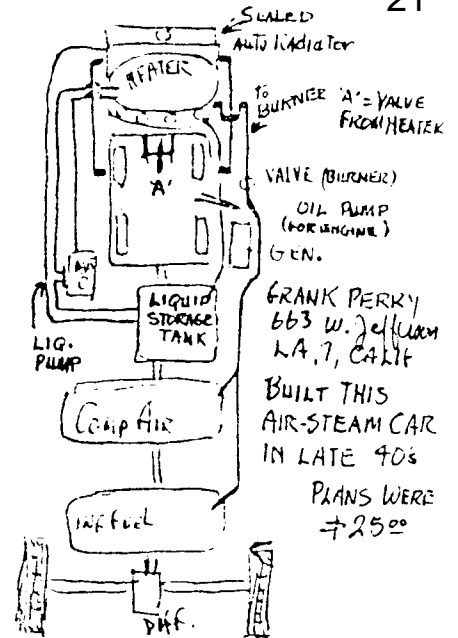 21
SEALED
AUTO RADIATOR
HEATER
TO
BURNER
'A' = VALVE
FROM HEATER
'A'
VALVE (BURNER)
OIL PUMP
(FOR ENGINE)
GEN.
LIQUID
STORAGE
TANK
LIQ.
PUMP
GRANK PERRY
663 W. Jefferson
LA, 7, CALIF
BUILT THIS
AIR-STEAM CAR
IN LATE 40's
PLANS WERE
$25.00
COMP AIR
FUEL
DIFF.